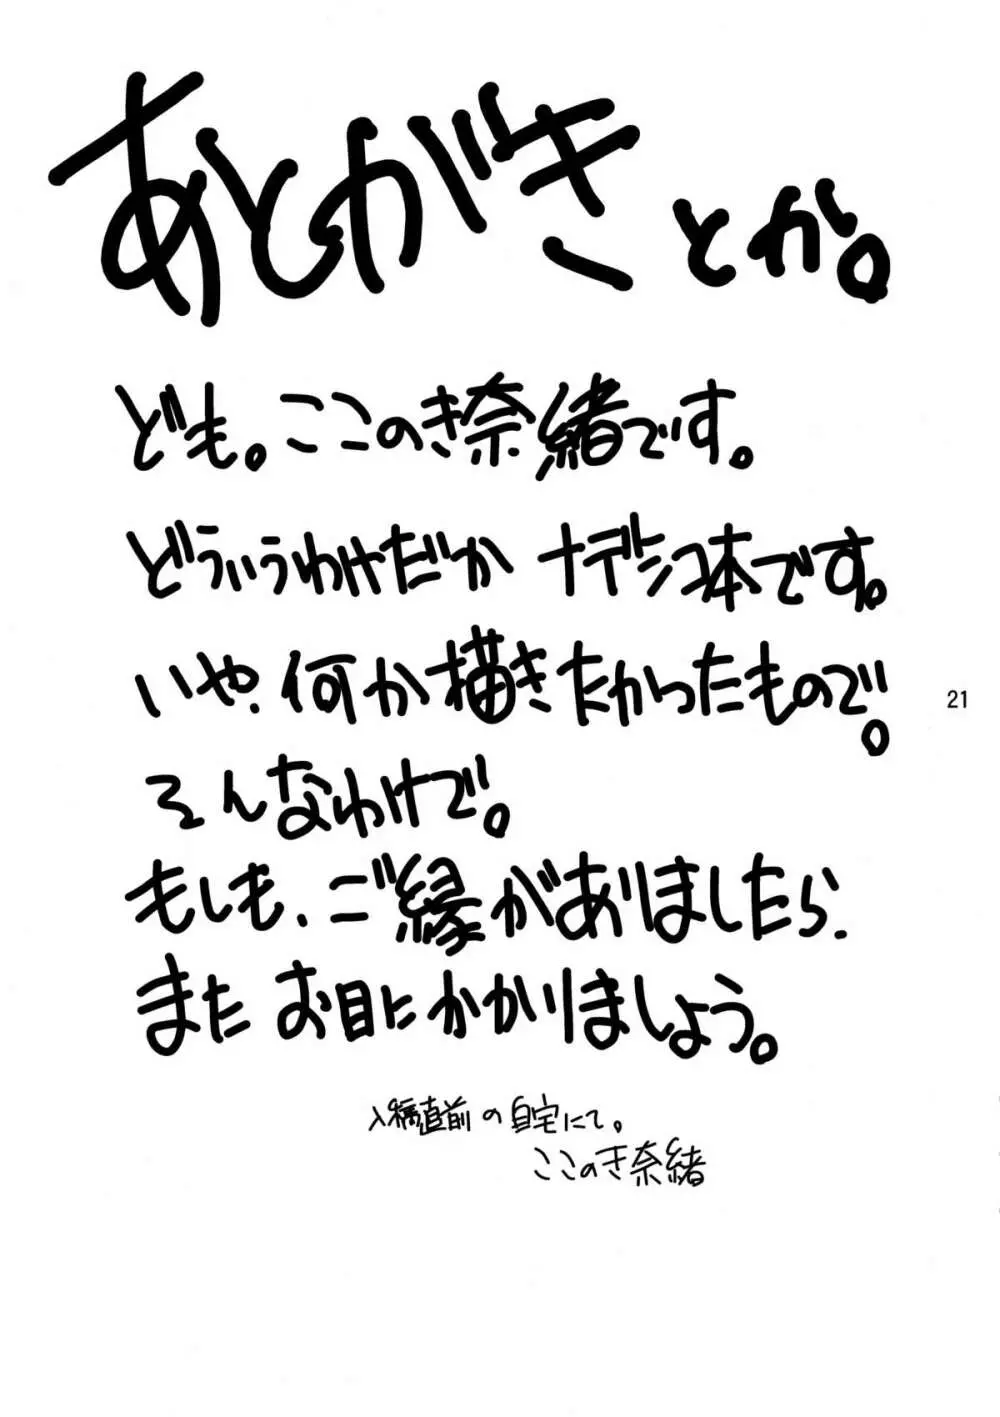 あとがきとか。
ども。ここのき奈緒です。
どういうわけだか ナデシコ本です。
いや、何か描きたかったもので。
そんなわけで。
もしも、ご縁がありましたら、
また お目にかかりましょう。
21
入稿直前の自宅にて。
ここのき奈緒